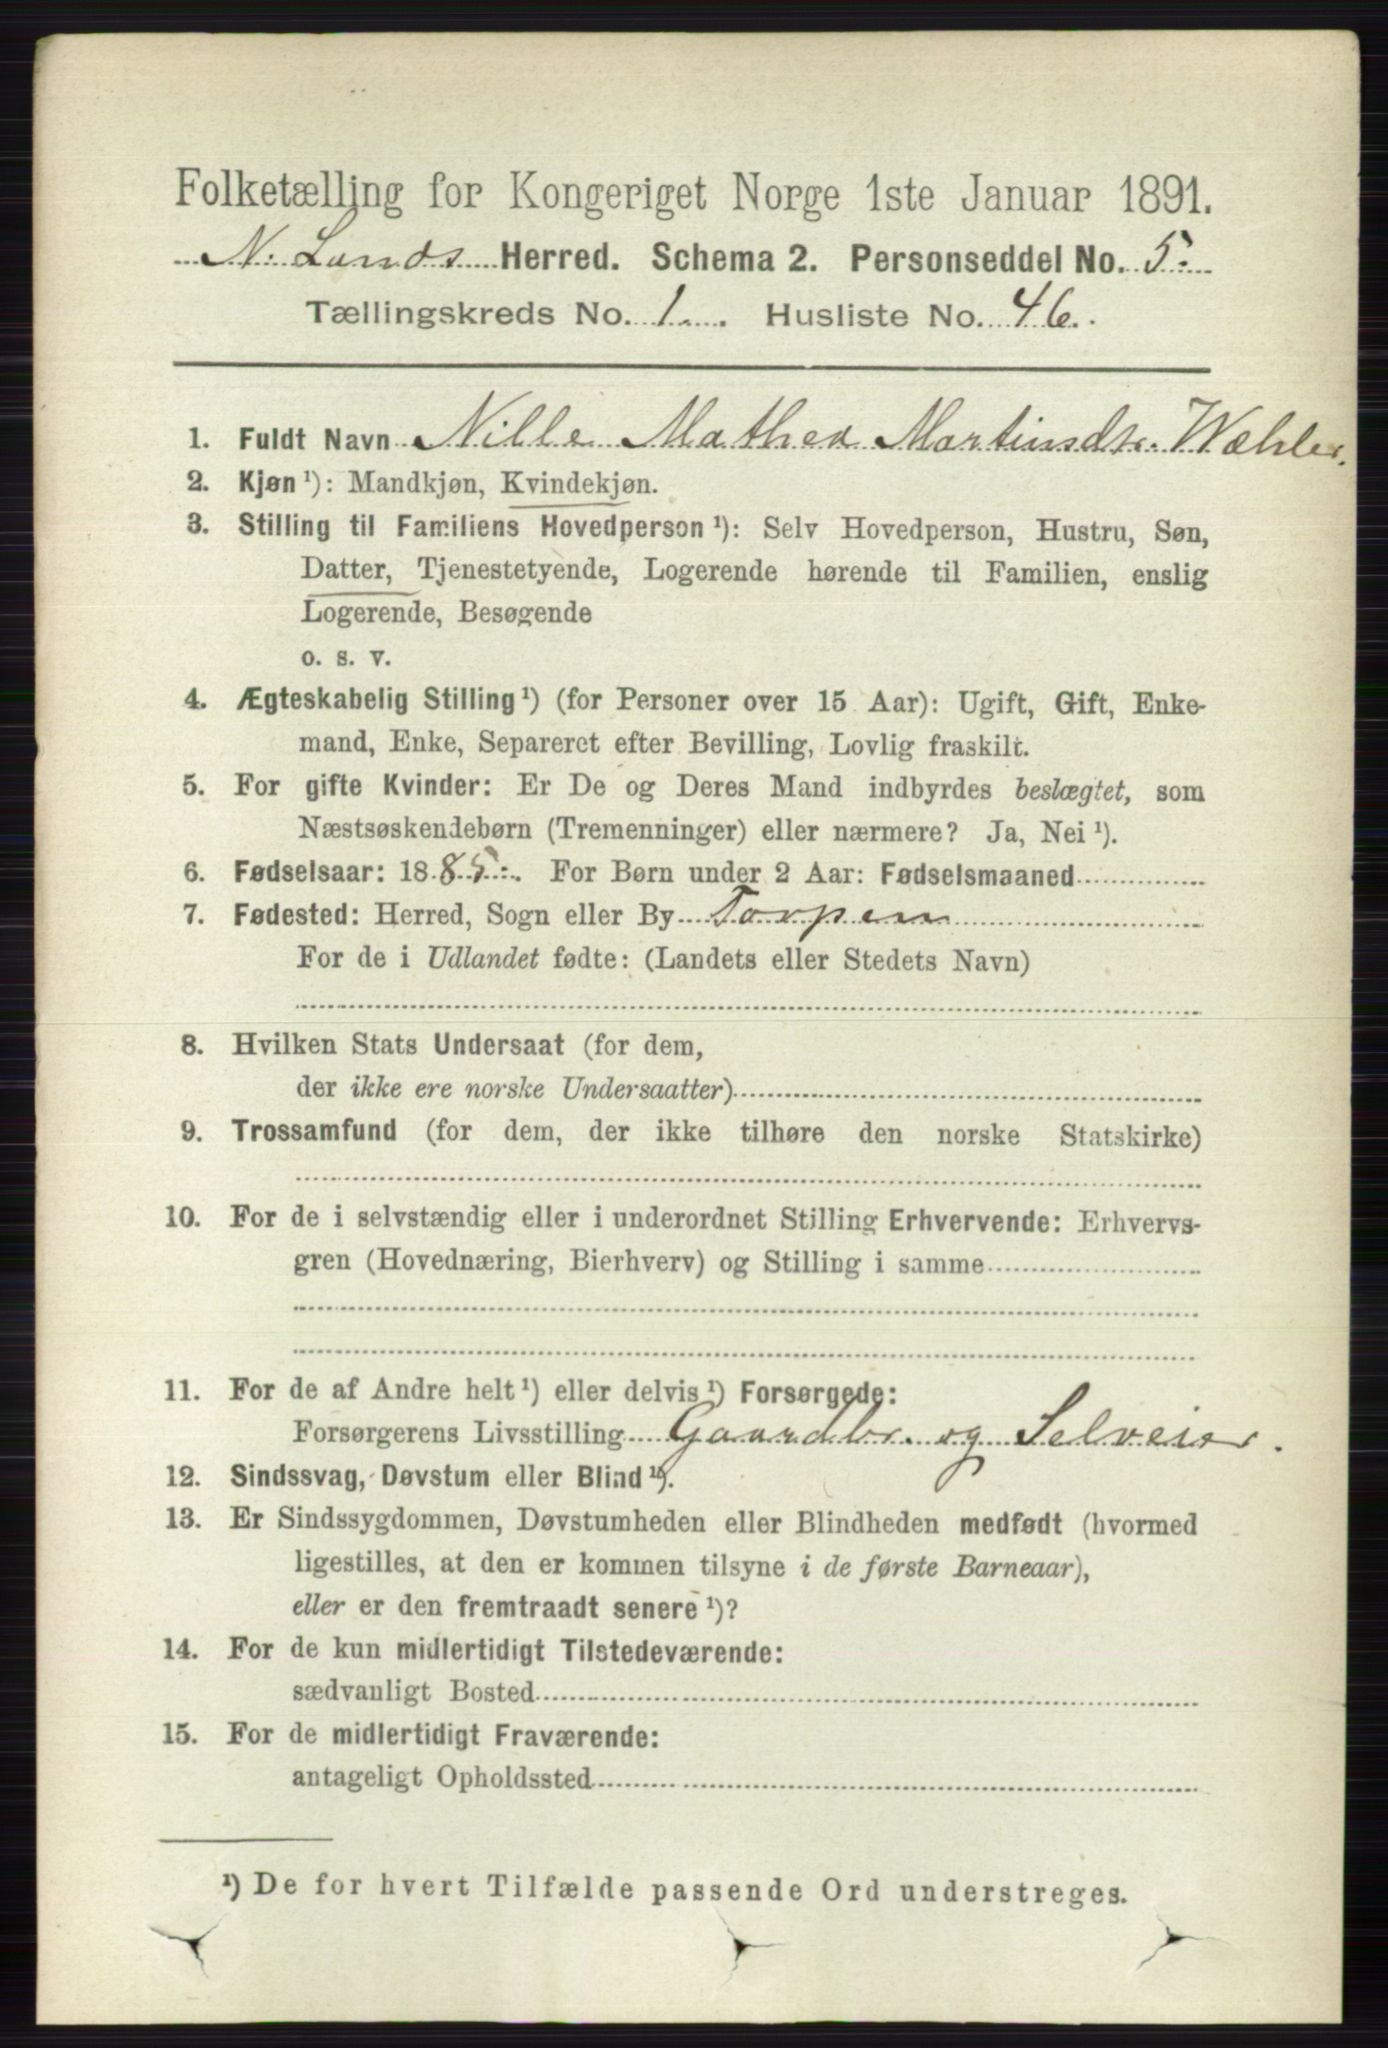 Folketælling for Kongeriget Norge 1ste Januar 1891.
N. Lands Herred. Schema 2. Personseddel No. 5.
Tællingskreds No. 1. Husliste No. 46.
1. Fuldt Navn Nille Mathea Martinsdtr. Wæhler.
2. Kjøn ¹): Mandkjøn, Kvindekjøn.
3. Stilling til Familiens Hovedperson ¹): Selv Hovedperson, Hustru, Søn,
Datter, Tjenestetyende, Logerende hørende til Familien, enslig
Logerende, Besøgende
o. s. v.
4. Ægteskabelig Stilling ¹) (for Personer over 15 Aar): Ugift, Gift, Enke-
mand, Enke, Separeret efter Bevilling, Lovlig fraskilt.
5. For gifte Kvinder: Er De og Deres Mand indbyrdes beslægtet, som
Næstsøskendebørn (Tremenninger) eller nærmere? Ja, Nei ¹).
6. Fødselsaar: 1885. For Børn under 2 Aar: Fødselsmaaned
7. Fødested: Herred, Sogn eller By Torpen
For de i Udlandet fødte: (Landets eller Stedets Navn)
8. Hvilken Stats Undersaat (for dem,
der ikke ere norske Undersaatter)
9. Trossamfund (for dem, der ikke tilhøre den norske Statskirke)
10. For de i selvstændig eller i underordnet Stilling Erhvervende: Erhvervs-
gren (Hovednæring, Bierhverv) og Stilling i samme
11. For de af Andre helt ¹) eller delvis ¹) Forsørgede:
Forsørgerens Livsstilling Gaardbr. og Selveier.
12. Sindssvag, Døvstum eller Blind ¹).
13. Er Sindssygdommen, Døvstumheden eller Blindheden medfødt (hvormed
ligestilles, at den er kommen tilsyne i de første Barneaar),
eller er den fremtraadt senere ¹)?
14. For de kun midlertidigt Tilstedeværende:
sædvanligt Bosted
15. For de midlertidigt Fraværende:
antageligt Opholdssted
¹) De for hvert Tilfælde passende Ord understreges.